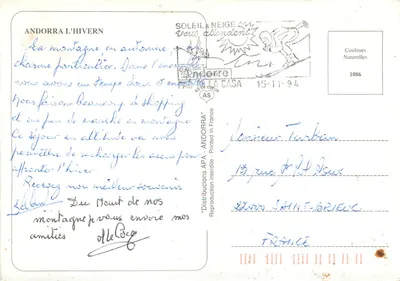 ANDORRA L'HIVERN
La montagne en automne,
charme particulier. Dans l'ensemble
nous avons un temps doux et
Nous faisons beaucoup de shopping
et un peu de marche en montagne
Ce séjour en altitude va nous
permettre de recharger les accus pour
affronter l'hiver
Recevez nos meilleurs souvenirs
Du Haut de nos
montagnes je vous envoie mes
amitiés
SOLEIL NEIGE
vous attendent
Andorre
15-11-94
AS
"Distribucions APA - ANDORRA"
Reproduction interdite - Printed in France
Couleurs
Naturelles
1086
Monsieur
13, rue
22000 SAINT-BRIEUC
FRANCE